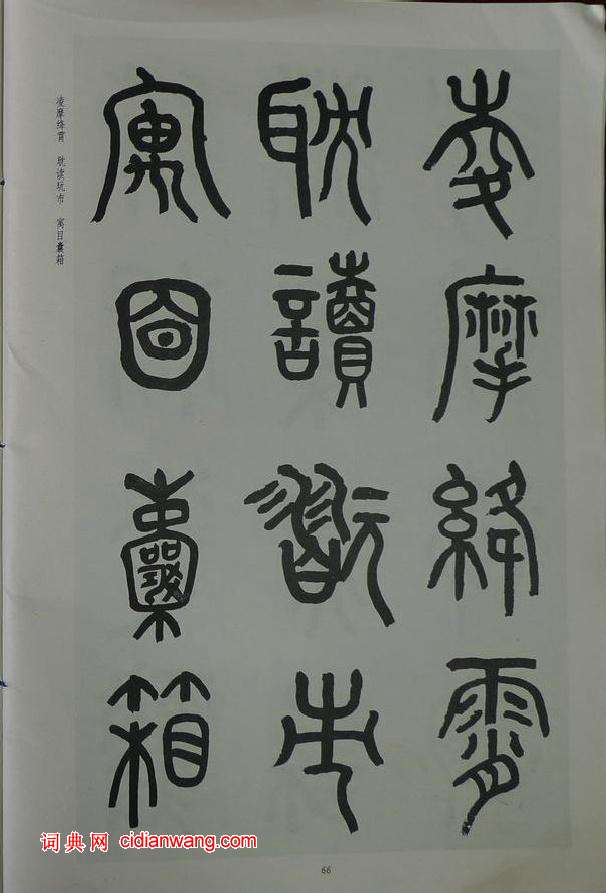 夌摩絳霄
耽讀翫市
寓目囊箱
凌摩绛霄 耽读玩市 寓目囊箱
词典网 cidianwang.com
66